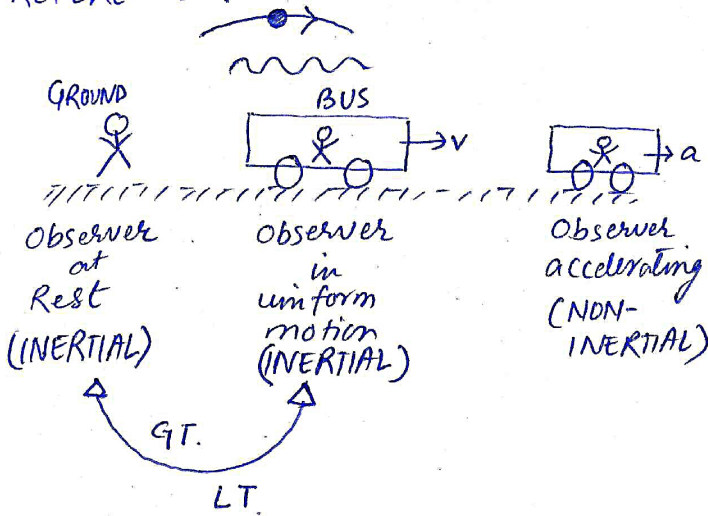 GROUND
BUS
v
a
Observer
at
Rest
(INERTIAL)
Observer
in
uniform
motion
(INERTIAL)
Observer
accelerating
(NON-
INERTIAL)
GT.
LT.